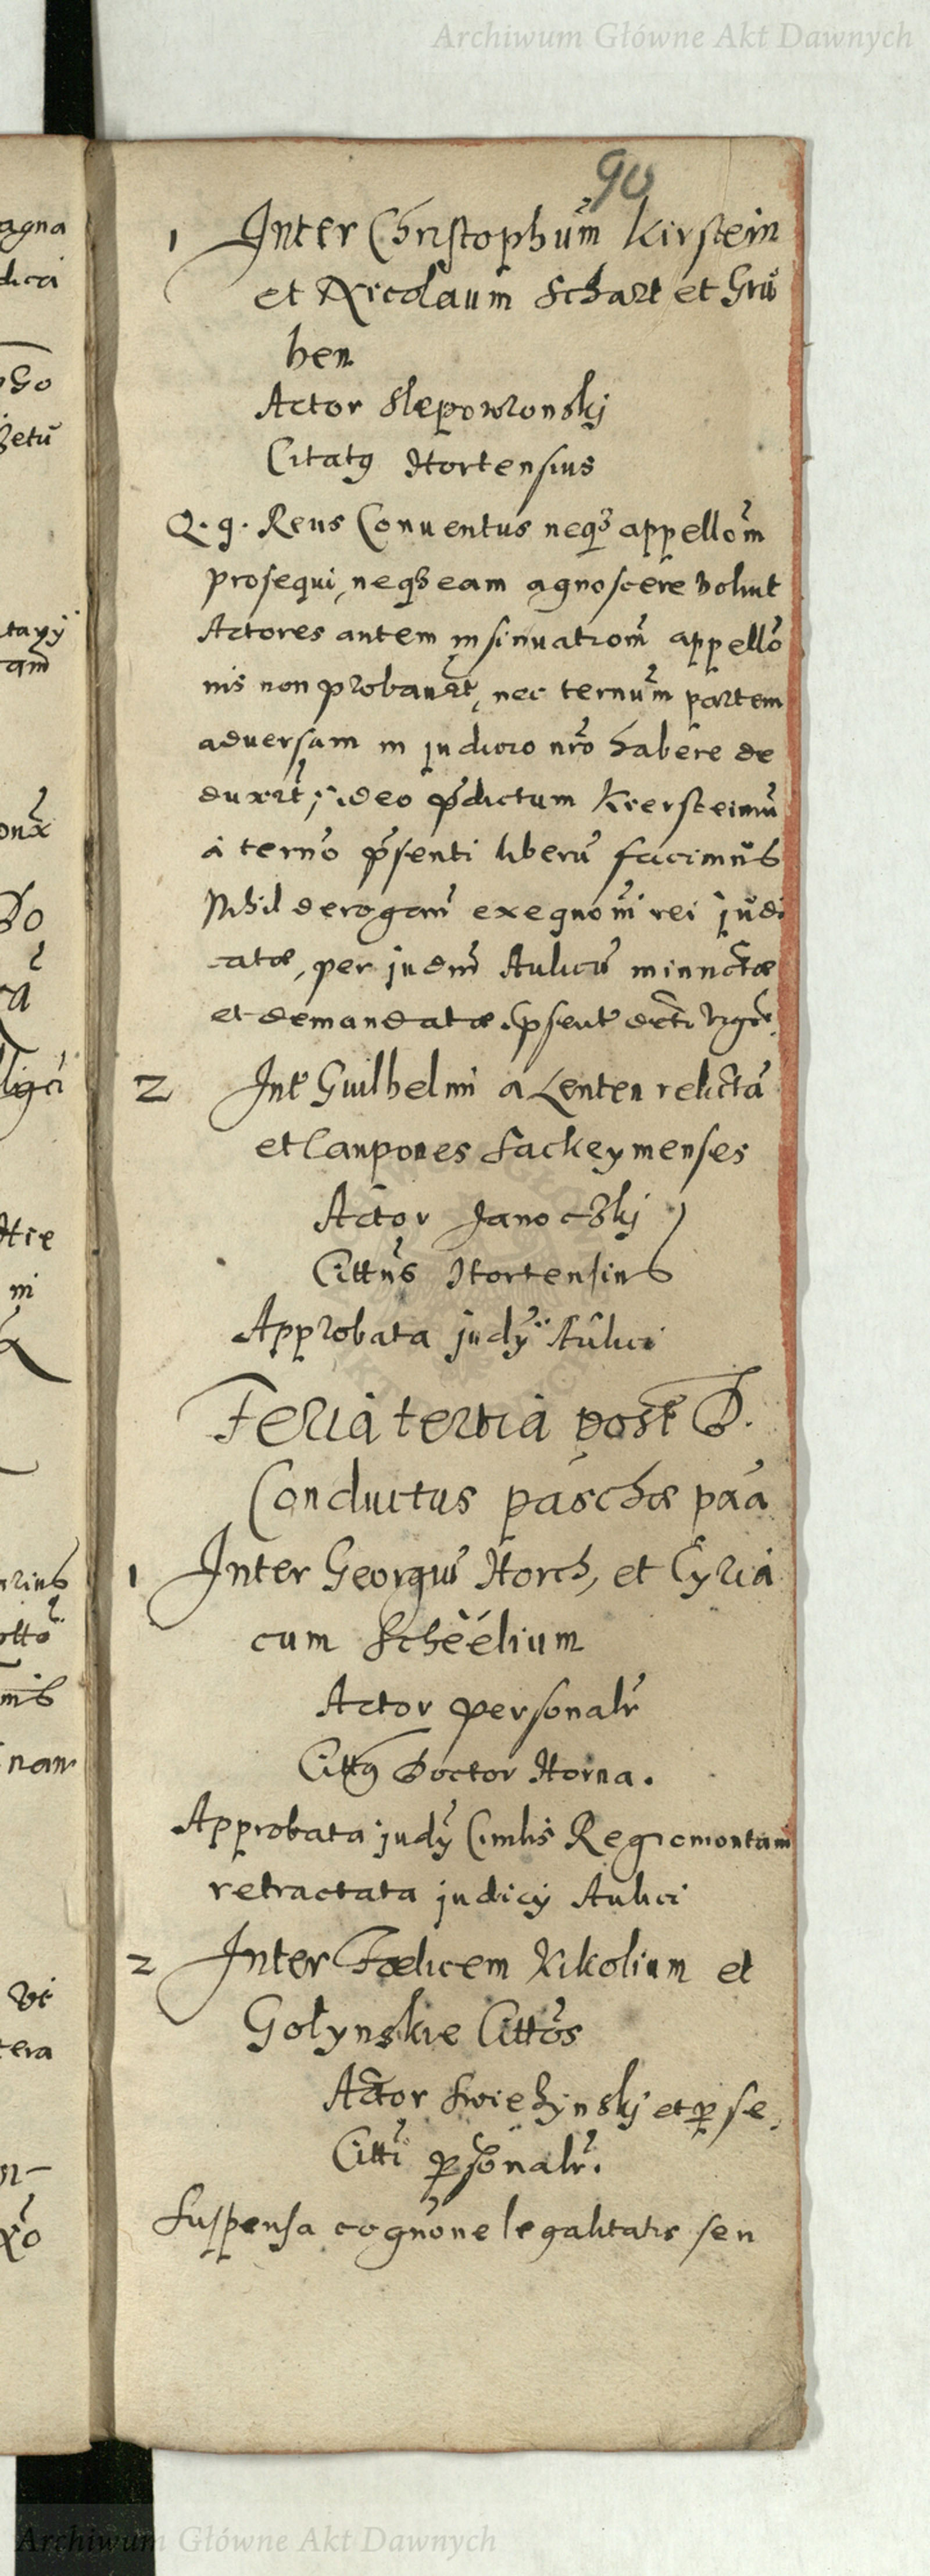 Archiwum Główne Akt Dawnych
90
1 Inter Christophum Kirstein
et Nicolaum Schart et Gru
ben
Actor Slepowronskj
Citatꝯ Hortensius
Q. g. Reus Conuentus neqꝫ appellom̃
prosequi, neqꝫ eam agnoscere voluit
Actores autem insinuatiom̃ appello
nis non probauer̃t, nec ternũm partem
aduersam in judicio nr̃o habere de
duxer̃t; ideo p̃dictum Kiersteinũ
à terño p̃senti liberũ facimus
Nihil derogan̄ exeqnom̃ rei judi
catæ, per judm̃ Aulicũ iniunctæ
et demandatæ. p̃sent̃ decti vigore
2 Int̃ Guilhelmi a Lenten relictã
et Caupones Sackeymenses
Actor Janoczkj
Cittus Hortensius
Approbata judỹ Aulici
Feria tertia post D.
Conductus paschæ pãa
1 Inter Georgiũ Horch, et Cyria
cum Scheelium
Actor personalr̃
Cittꝯ Doctor Horna.
Approbata judỹ Ciuilis Regiomontani
retractata judicij Aulici
2 Inter Fœlicem Nikolium et
Gołynskie Cittõs
Actor Swiezynskj et ꝑ se
Citti ꝑsonalr̃.
Suspensa cognõne legalitatis sen
agna
dici
etũ
onx̃
tera
Archiwum Główne Akt Dawnych